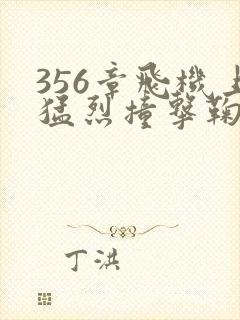 356章飛機上
猛烈撞擊鞠
丁洪